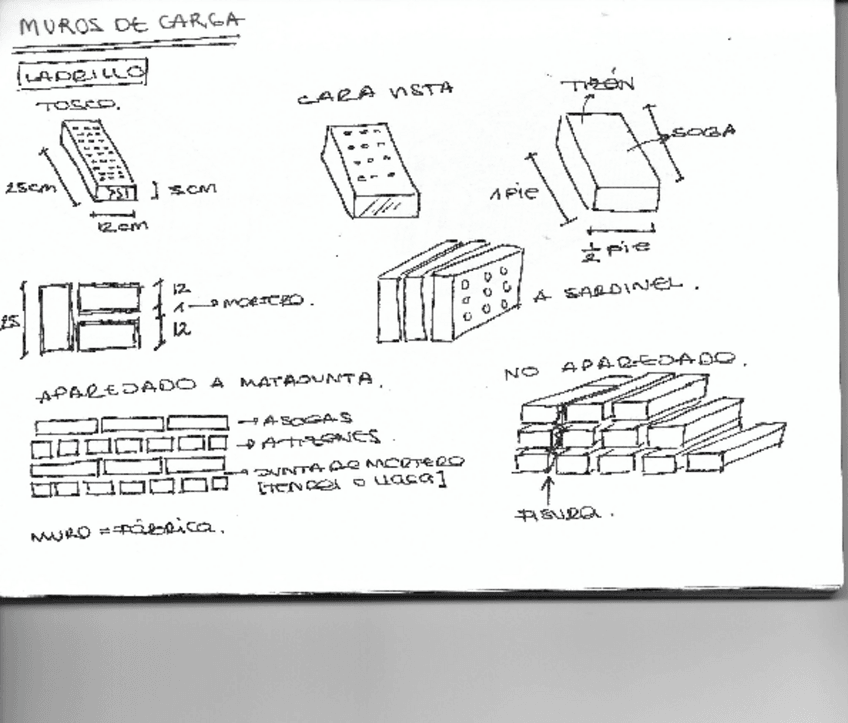 MUROS DE CARGA
LADRILLO
TOSCO.
CARA VISTA
TIZÓN
SOGA
25cm
5cm
12cm
1 pie
1/2 pie
25
12
1 → MORTERO.
12
A SARDINEL.
APAREJADO A MATAJUNTA.
NO APAREJADO.
→ A SOGAS
→ A TIZONES
→ JUNTA DE MORTERO
[TENDEL O LLAGA]
FISURA.
MURO = FÁBRICA.